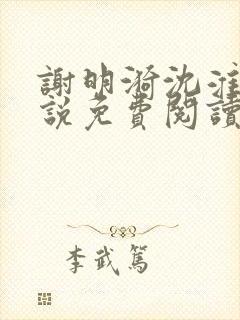 謝明漪沈淮
說免費閱讀
李武篤